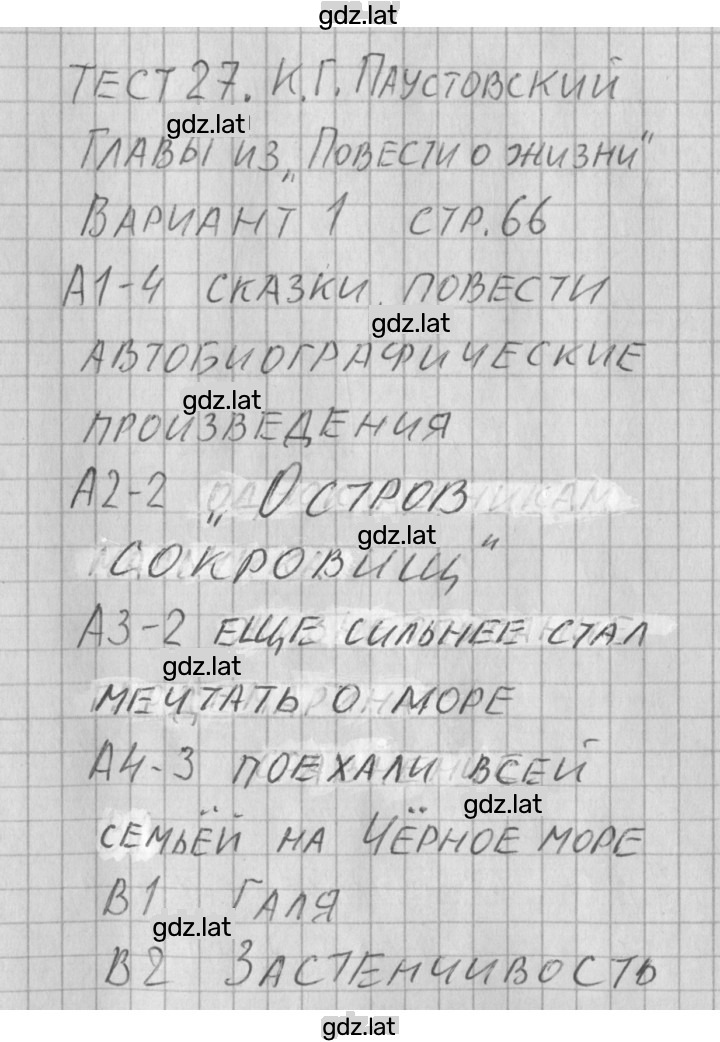 gdz.lat
ТЕСТ 27. К.Г. ПАУСТОВСКИЙ
gdz.lat
ГЛАВЫ ИЗ „ПОВЕСТИ О ЖИЗНИ"
ВАРИАНТ 1 СТР. 66
А1-4 СКАЗКИ. ПОВЕСТИ
gdz.lat
АВТОБИОГРАФИЧЕСКИЕ
gdz.lat
ПРОИЗВЕДЕНИЯ
А2-2 „ОСТРОВ
gdz.lat
СОКРОВИЩ"
А3-2 ЕЩЕ СИЛЬНЕЕ СТАЛ
gdz.lat
МЕЧТАТЬ О МОРЕ
А4-3 ПОЕХАЛИ ВСЕЙ
gdz.lat
СЕМЬЁЙ НА ЧЁРНОЕ МОРЕ
В1 ГАЛЯ
gdz.lat
В2 ЗАСТЕНЧИВОСТЬ
gdz.lat